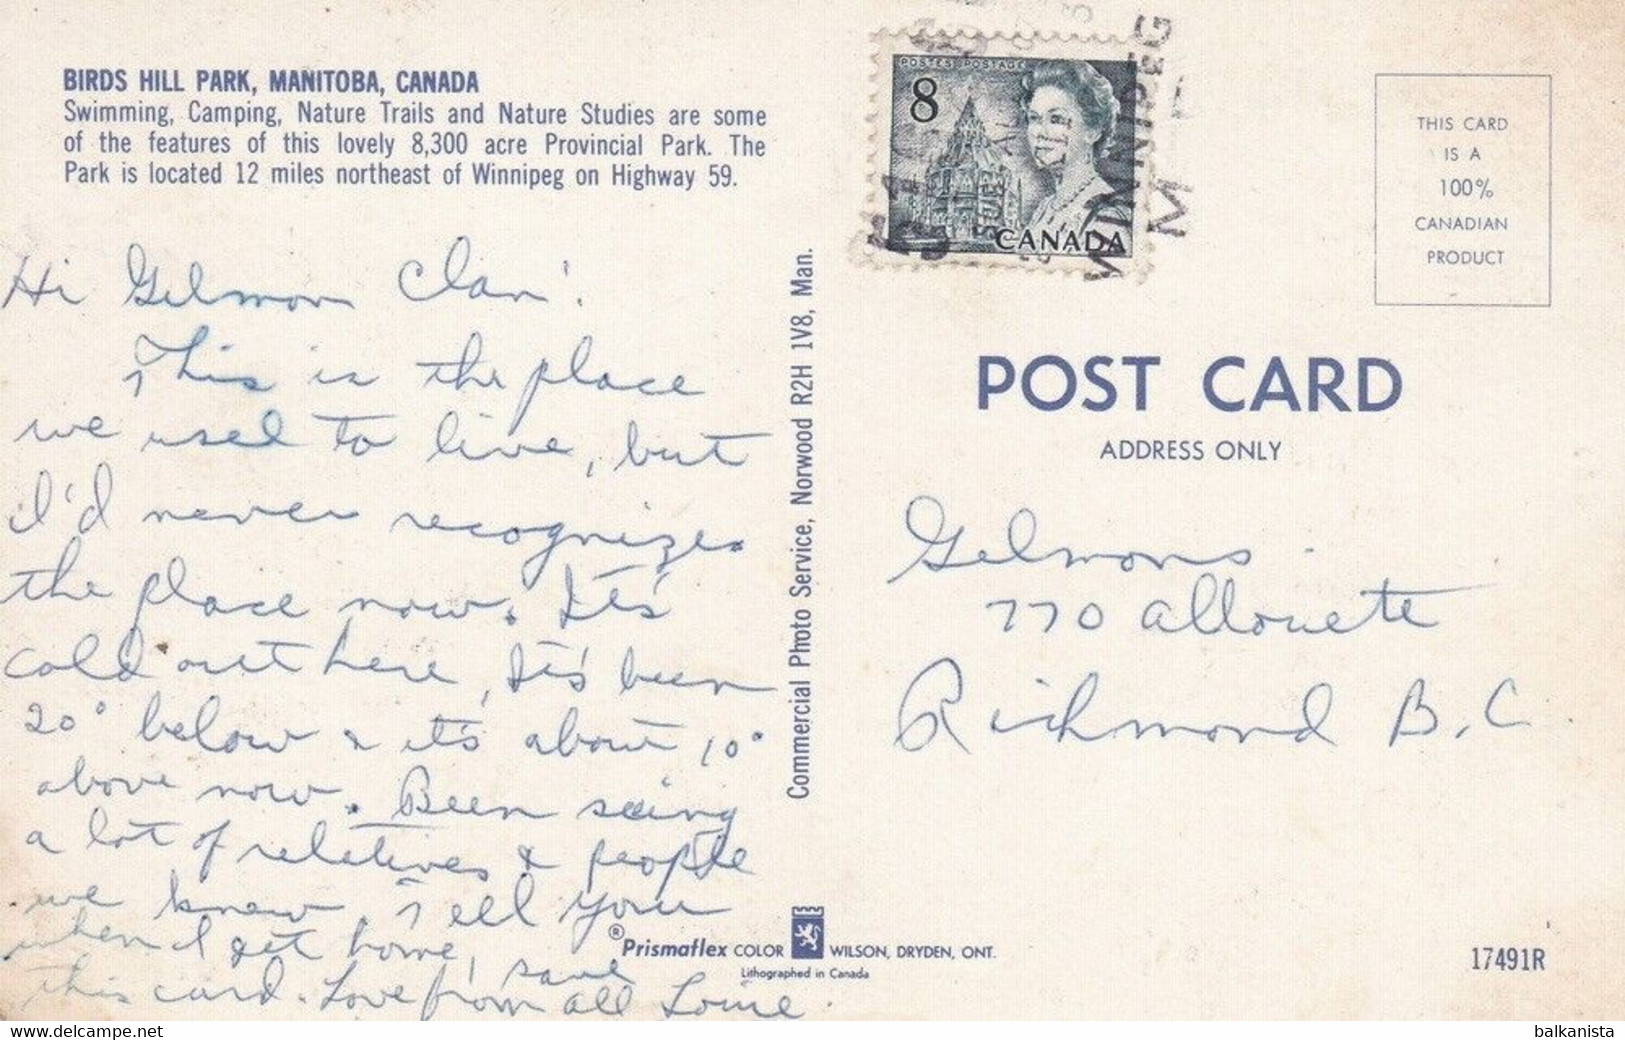 BIRDS HILL PARK, MANITOBA, CANADA
Swimming, Camping, Nature Trails and Nature Studies are some
of the features of this lovely 8,300 acre Provincial Park. The
Park is located 12 miles northeast of Winnipeg on Highway 59.
Hi Gelmon Clan!
This is the place
we used to live, but
I'd never recognize
the place now. It's
cold out here, It's been
20° below & it's about 10°
above now. Been seeing
a lot of relatives & people
we know, Tell you
when I get home, save
this card. Love from all
Commercial Photo Service, Norwood R2H 1V8, Man.
POSTES POSTAGE
8
CANADA
WINNIPEG
M
THIS CARD
IS A
100%
CANADIAN
PRODUCT
POST CARD
ADDRESS ONLY
Gelmons
770 Allouette
Richmond B.C.
® Prismaflex COLOR WILSON, DRYDEN, ONT.
Lithographed in Canada
17491R
www.delcampe.net
balkanista